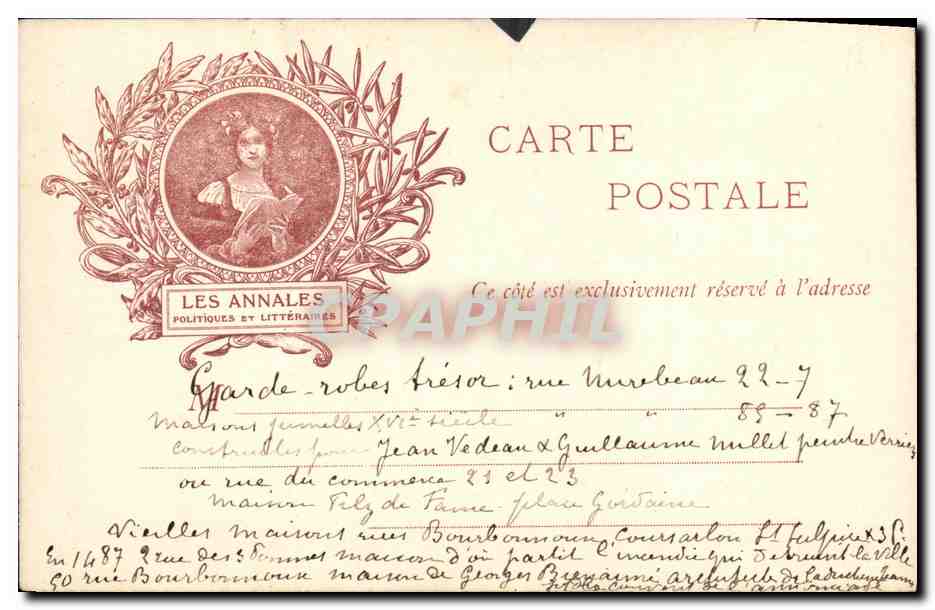 CARTE
POSTALE
LES ANNALES
POLITIQUES ET LITTÉRAIRES
Ce côté est exclusivement réservé à l'adresse
CPAPHIL
M
Garde-robes trésor : rue Mirebeau 22-7
Maisons jumelles XVIe siècle " " 85-87
construites pour Jean Vedeau & Guillaume Millet peintre Verrier
ou rue du commerce 21 et 23
maison Pelz de Fame place Gordaine
Vieilles maisons rues Bourbonnoux, Coursarlon St Sulpice x 3 P.
En 1487 2 rue des 3 Pommes maison d'où partit l'incendie qui la ville
50 rue Bourbonnoux maison de Georges architecte de la duchesse Jeanne
couvent de l'annonciade